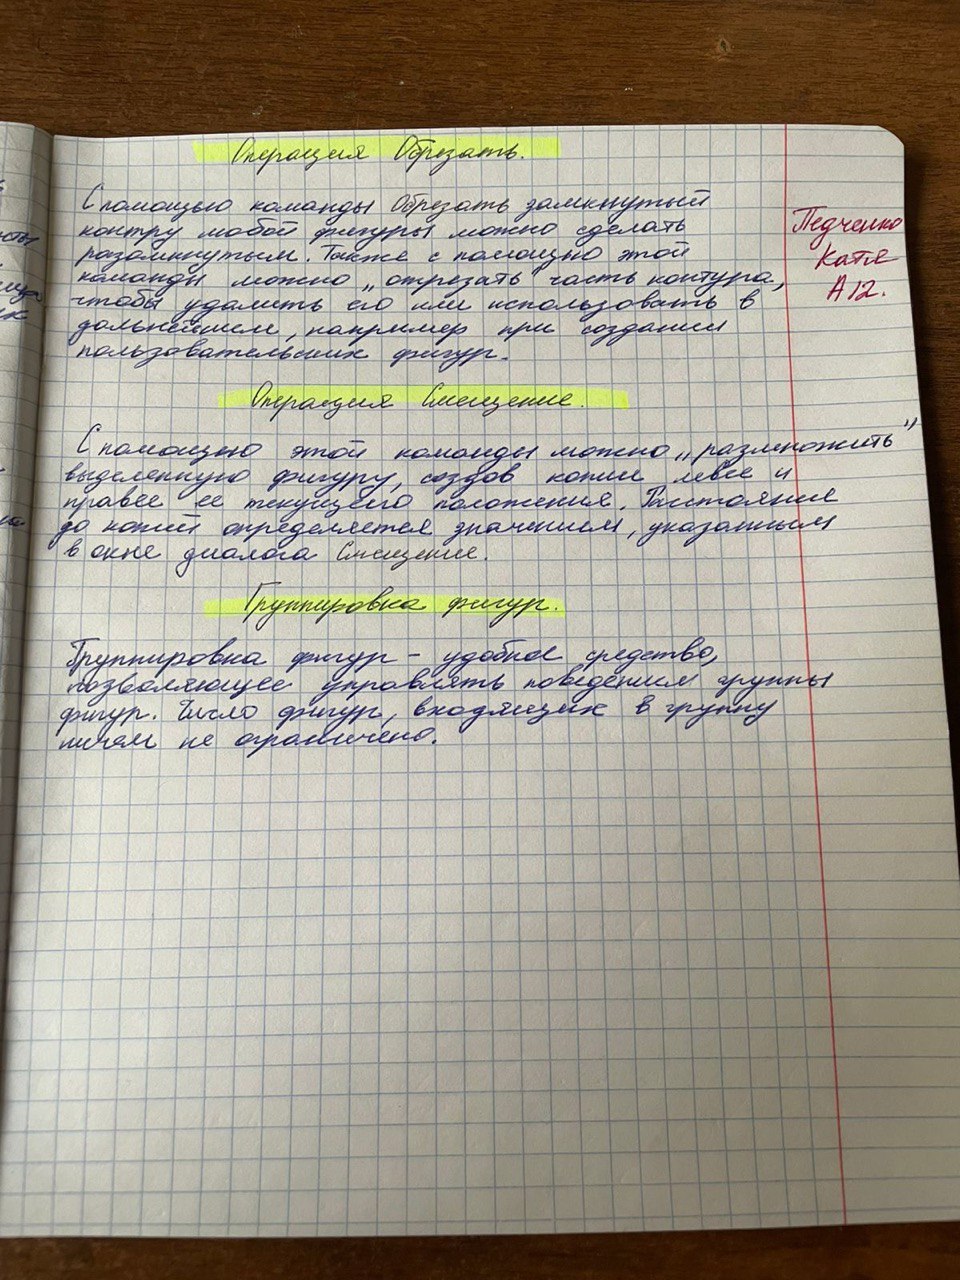 Операция Обрезать.
С помощью команды Обрезать замкнутый
контру любой фигуры можно сделать
разомкнутым. Также с помощью этой
команды можно „отрезать" часть контура,
чтобы удалить его или использовать в
дальнейшем, например при создании
пользовательских фигур.
Педченко
Катя
А12.
Операция Смещение.
С помощью этой команды можно „размножить"
выделенную фигуру, создав копии левее и
правее ее текущего положения. Расстояние
до копий определяется значением, указанным
в окне диалога Смещение.
Группировка фигур.
Группировка фигур – удобное средство,
позволяющее управлять поведением группы
фигур. Число фигур, входящих в группу
ничем не ограничено.